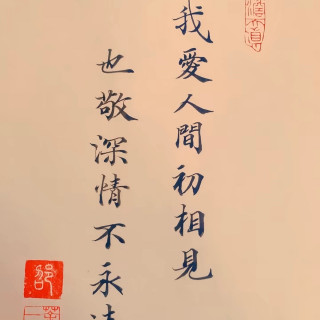 我愛人間初相見
也敬深情不永